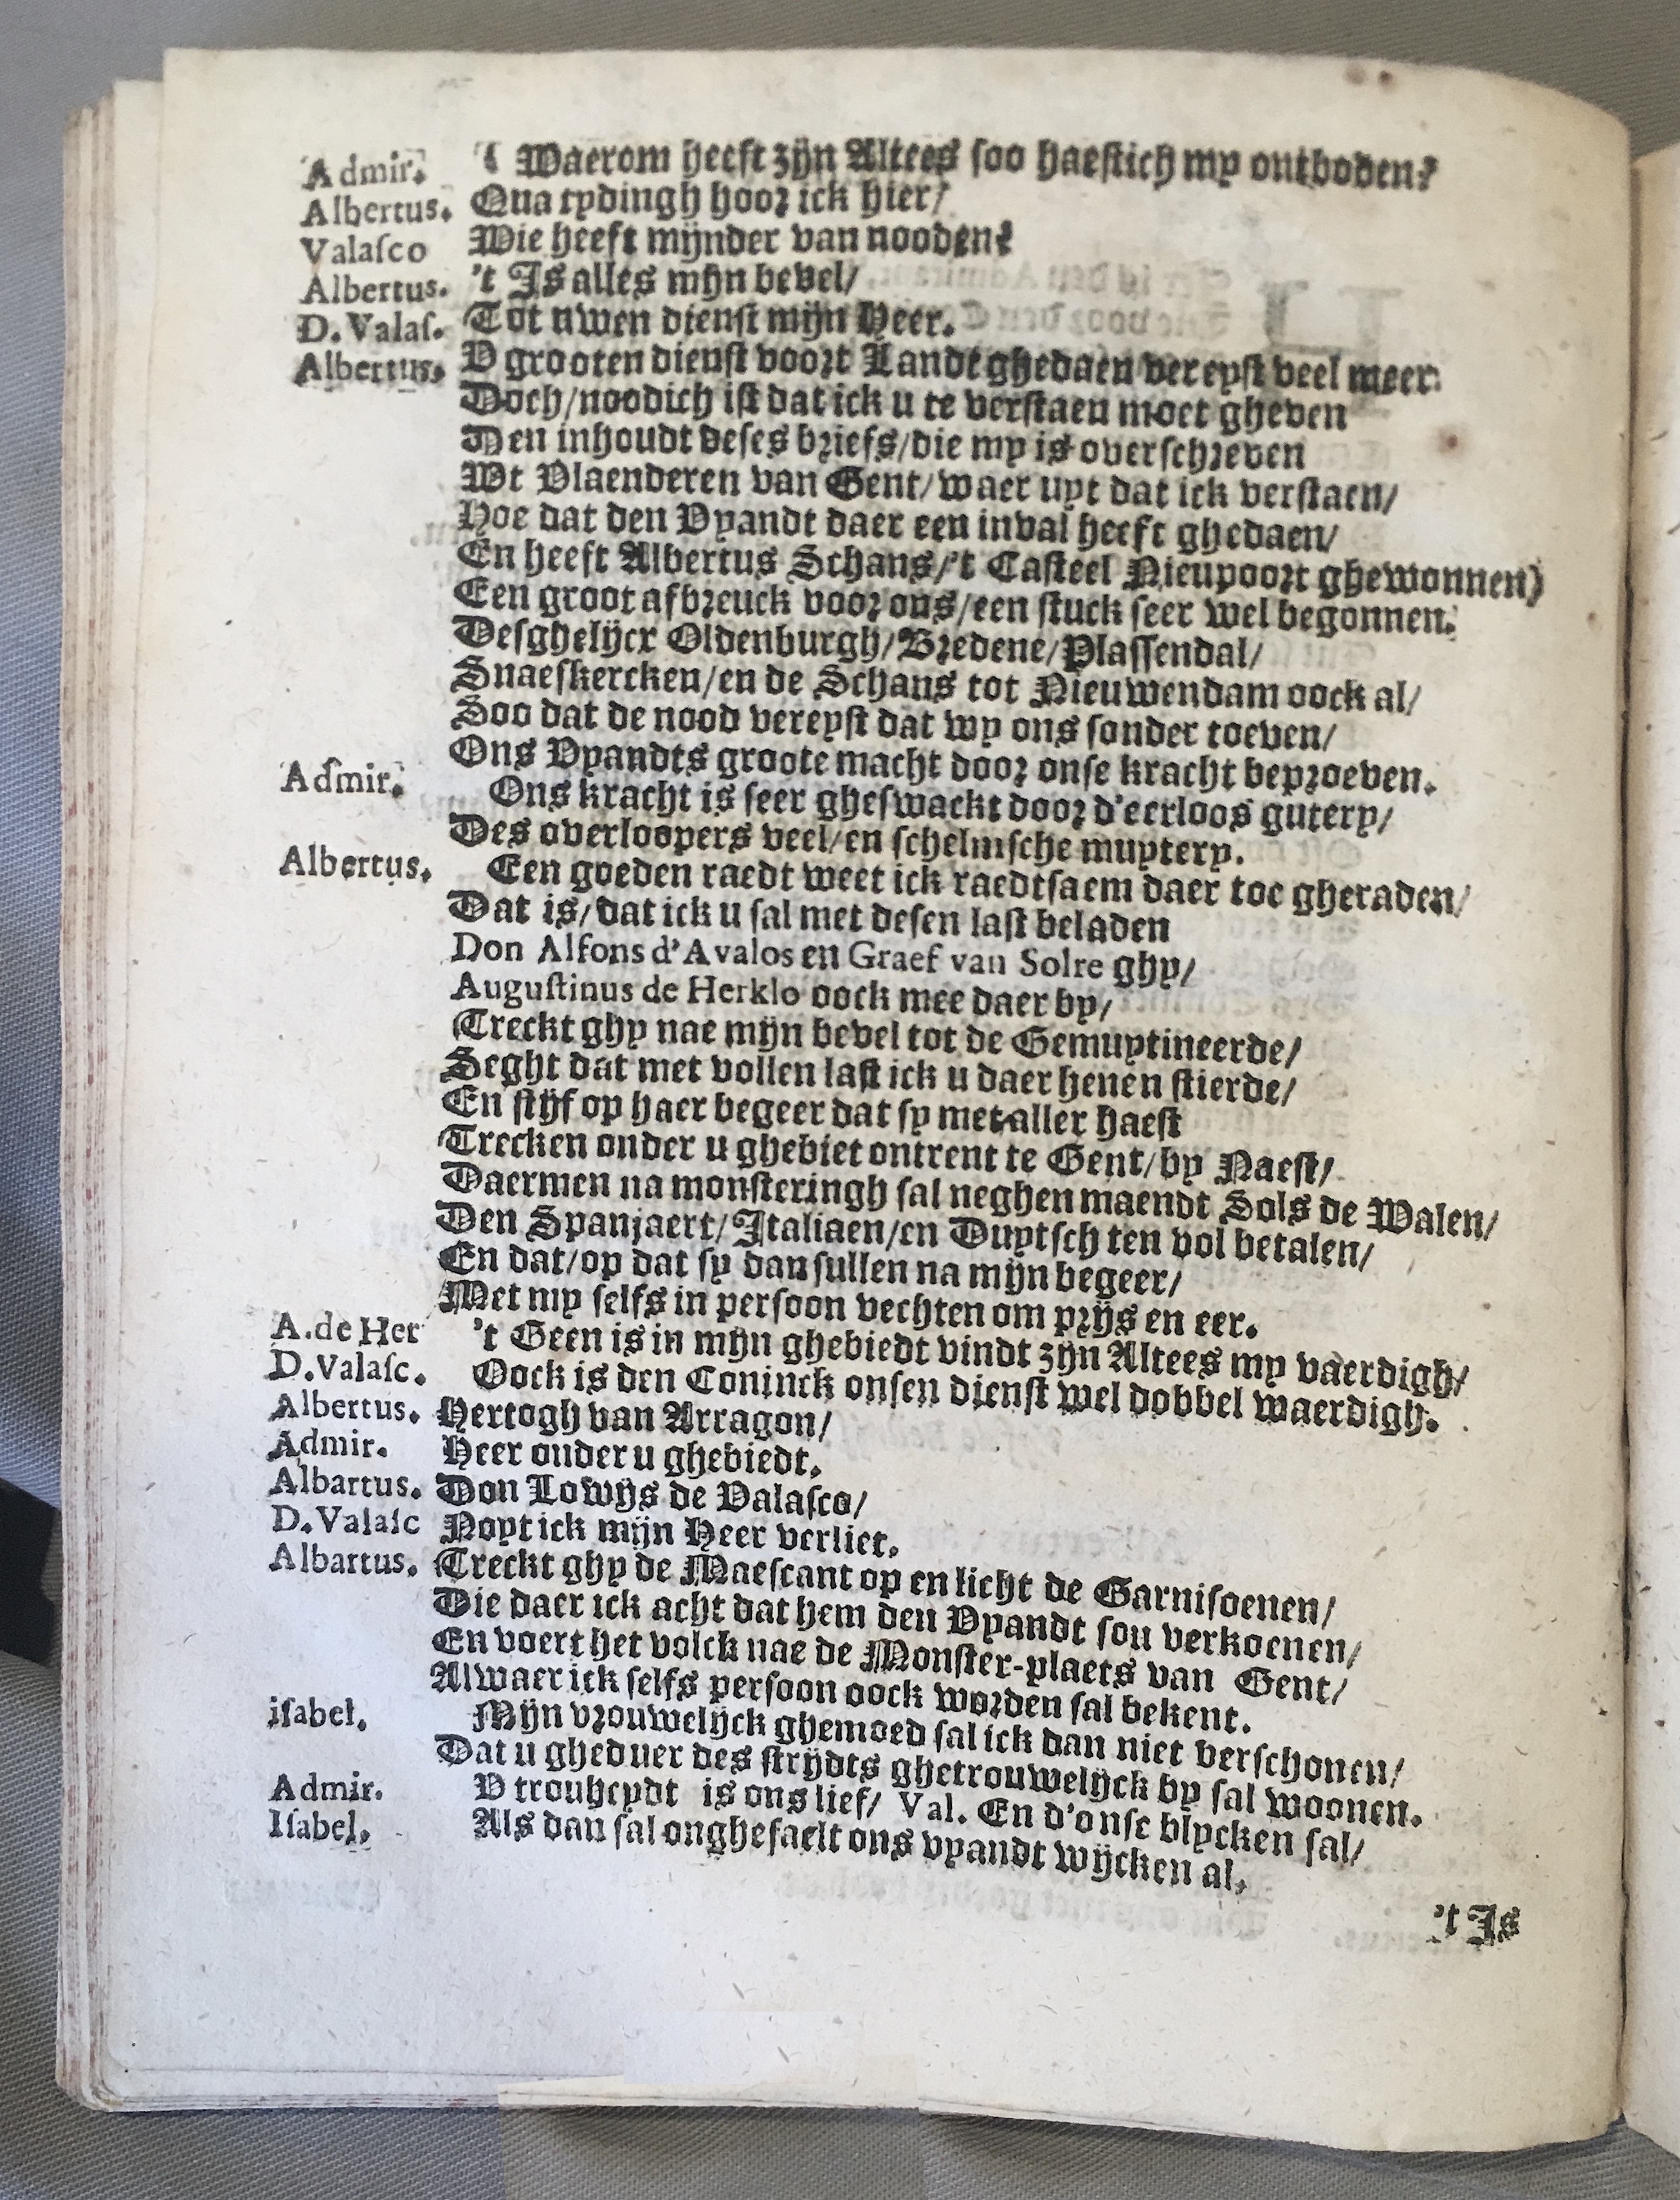 Admir. 't Waerom heeft zijn Altees soo haestich my ontboden?
Albertus. Qua tydingh hoor ick hier/
Valasco Wie heeft mijnder van nooden?
Albertus. 't Is alles mijn bevel/
D. Valas. Tot uwen dienst mijn Heer.
Albertus. V grooten dienst voort Landt ghedaen vereyst veel meer.
Doch/noodich ist dat ick u te verstaen moet gheven
Den inhoudt deses briefs/die my is overschreven
Wt Vlaenderen van Gent/waer uyt dat ick verstaen/
Hoe dat den Vyandt daer een inval heeft ghedaen/
En heeft Albertus Schans/'t Casteel Nieupoort ghewonnen)
Een groot afbreuck voor ons/een stuck seer wel begonnen.
Desghelijcx Oldenburgh/Bredene/Plassendal/
Snaeskercken/en de Schans tot Nieuwendam oock al/
Soo dat de nood vereyst dat wy ons sonder toeven/
Ons Vyandts groote macht door onse kracht beproeven.
Admir. Ons kracht is seer gheswackt door d'eerloos gutery/
Des overloopers veel/en schelmsche muytery.
Albertus. Een goeden raedt weet ick raedtsaem daer toe gheraden/
Dat is/dat ick u sal met desen last beladen
Don Alfons d'Avalos en Graef van Solre ghy/
Augustinus de Herklo oock mee daer by/
Treckt ghy nae mijn bevel tot de Gemuytineerde/
Seght dat met vollen last ick u daer henen stierde/
En stijf op haer begeer dat sy met aller haest
Trecken onder u ghebiet ontrent te Gent/by Naest/
Daermen na monsteringh sal neghen maendt Sols de Walen/
Den Spanjaert/Italiaen/en Duytsch ten vol betalen/
En dat/op dat sy dan sullen na mijn begeer/
Met my selfs in persoon vechten om prijs en eer.
A. de Her 't Geen is in mijn ghebiedt vindt zijn Altees my vaerdigh/
D. Valasc. Oock is den Coninck onsen dienst wel dobbel waerdigh.
Albertus. Hertogh van Arragon/
Admir. Heer onder u ghebiedt.
Albartus. Don Lowijs de Valasco/
D. Valasc Noyt ick mijn Heer verliet.
Albartus. Treckt ghy de Maescant op en licht de Garnisoenen/
Die daer ick acht dat hem den Vyandt sou verkoenen/
En voert het volck nae de Monster-plaets van Gent/
Alwaer ick selfs persoon oock worden sal bekent.
isabel. Mijn vrouwelijck ghemoed sal ick dan niet verschonen/
Dat u gheduer des strijdts ghetrouwelijck by sal woonen.
Admir. V trouheydt is ons lief/ Val. En d'onse blycken sal/
Isabel. Als dan sal onghefaelt ons vyandt wijcken al.
't Is